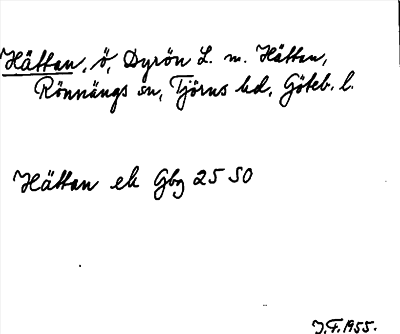 Hättan, ö, Dyrön L. m. Hättan,
Rönnängs sn, Tjörns hd, Göteb. l.
Hättan ek Gbg 25 SO
J.F. 1955.